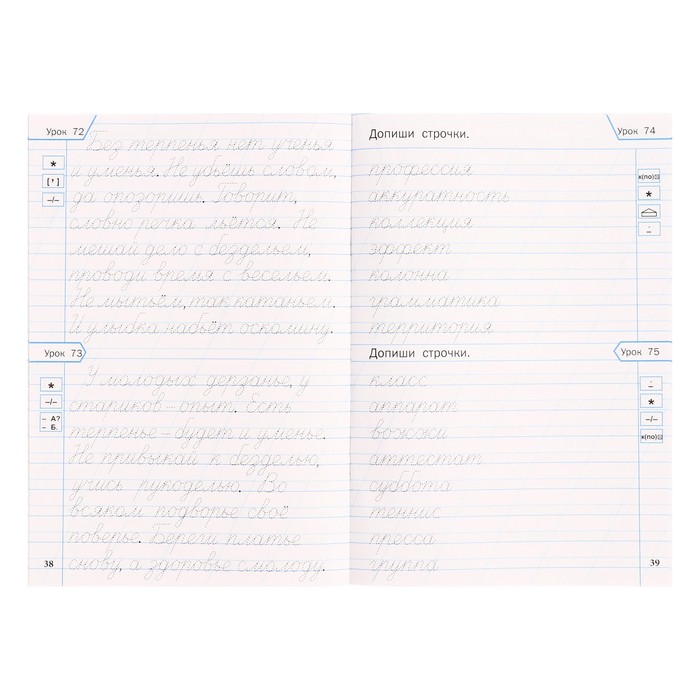 Урок 72
Без терпенья нет ученья
и уменья. Не убьёшь словом,
да опозоришь. Говорит,
словно речка льётся. Не
мешай дело с бездельем,
проводи время с весельем.
Не мытьём, так катаньем.
И улыбка набьёт оскомину.
Урок 73
У молодых дерзанье, у
стариков – опыт. Есть
терпенье – будет и уменье.
Не привыкай к безделью,
учись рукоделью. Во
всяком подворье своё
поверье. Береги платье
снову, а здоровье смолоду.
– А?
– Б.
38
Урок 74
Допиши строчки.
профессия
аккуратность
коллекция
эффект
колонна
грамматика
территория
Урок 75
Допиши строчки.
класс
аппарат
вожжи
аттестат
суббота
теннис
пресса
группа
39